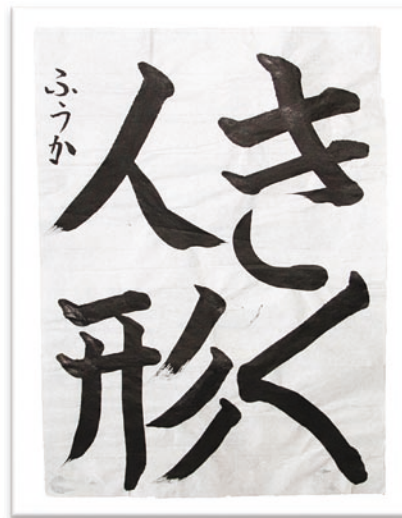 きく
人形
ふうか